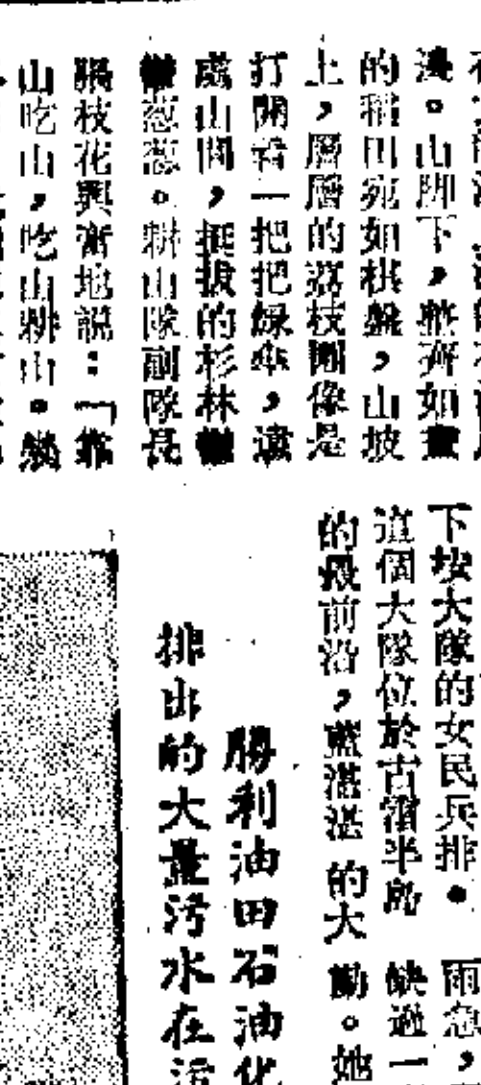 邊。山脚下,整齊如畫
的稻田宛如棋盤,山坡
上,層層的荔枝園像是
打開着一把把綠傘,遠
處山間,挺拔的杉林鬱
鬱葱葱。耕山隊副隊長
楊枝花興奮地說:「靠
山吃山,吃山耕山。
下垵大隊的女民兵排。
這個大隊位於古雷半島
的最前沿,藍湛湛的大
雨急,
缺過一
勵。她
勝利油田石油化
排出的大量污水在